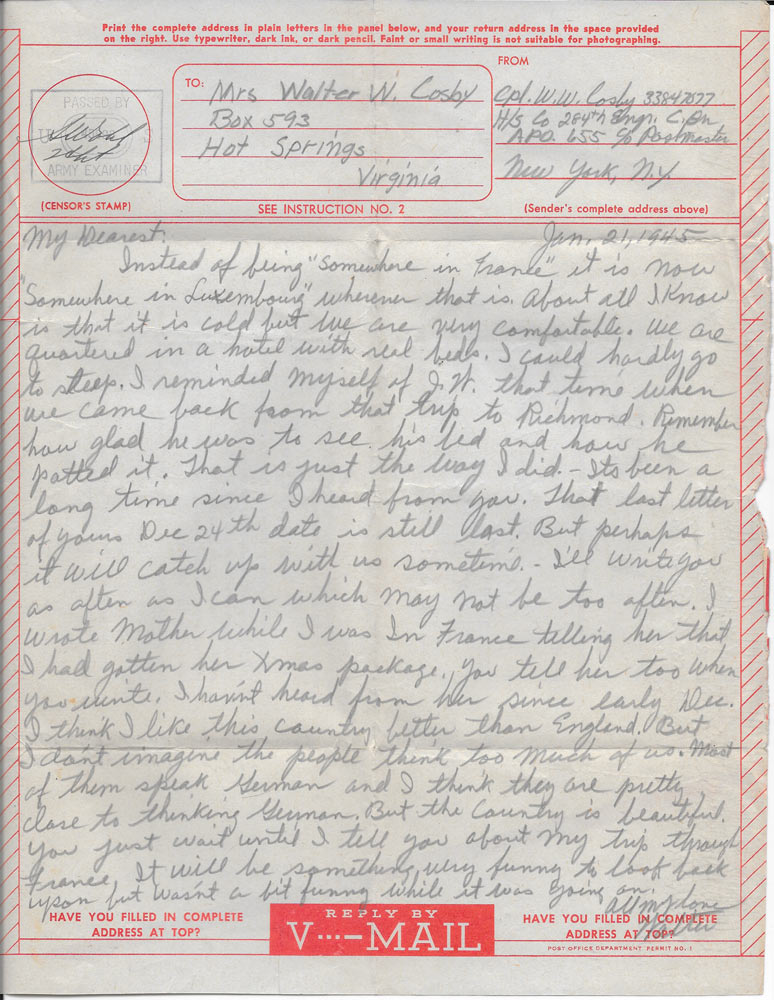 Print the complete address in plain letters in the panel below, and your return address in the space provided
on the right. Use typewriter, dark ink, or dark pencil. Faint or small writing is not suitable for photographing.
FROM
TO:
Mrs Walter W. Cosby
Box 593
Hot Springs
Virginia
Cpl. W.W. Cosby 33847077
H/S Co 284th Engr. C. Bn
A.P.O. 655 c/o Postmaster
New York, N.Y
PASSED BY
ARMY EXAMINER
(CENSOR'S STAMP)
SEE INSTRUCTION NO. 2
(Sender's complete address above)
My Dearest:
Jan. 21, 1945
Instead of being "Somewhere in France" it is now
"Somewhere in Luxembourg" wherever that is. About all I know
is that it is cold but we are very comfortable. We are
quartered in a hotel with real beds. I could hardly go
to sleep. I reminded myself of J.W. that time when
we came back from that trip to Richmond. Remember
how glad he was to see his bed and how he
patted it. That is just the way I did. - Its been a
long time since I heard from you. That last letter
of yours Dec 24th date is still last. But perhaps
it will catch up with us sometime. - I'll write you
as often as I can which may not be too often. I
wrote Mother while I was In France telling her that
I had gotten her Xmas package. You tell her too when
you write. I havn't heard from her since early Dec.
I think I like this country better than England. But
I don't imagine the people think too much of us. Most
of them speak German and I think they are pretty
close to thinking German. But the Country is beautiful.
You just wait until I tell you about my trip through
France. It will be something very funny to look back
upon but wasn't a bit funny while it was going on.
All my love
Walter
HAVE YOU FILLED IN COMPLETE
ADDRESS AT TOP?
REPLY BY
V···—MAIL
HAVE YOU FILLED IN COMPLETE
ADDRESS AT TOP?
POST OFFICE DEPARTMENT PERMIT NO. 1